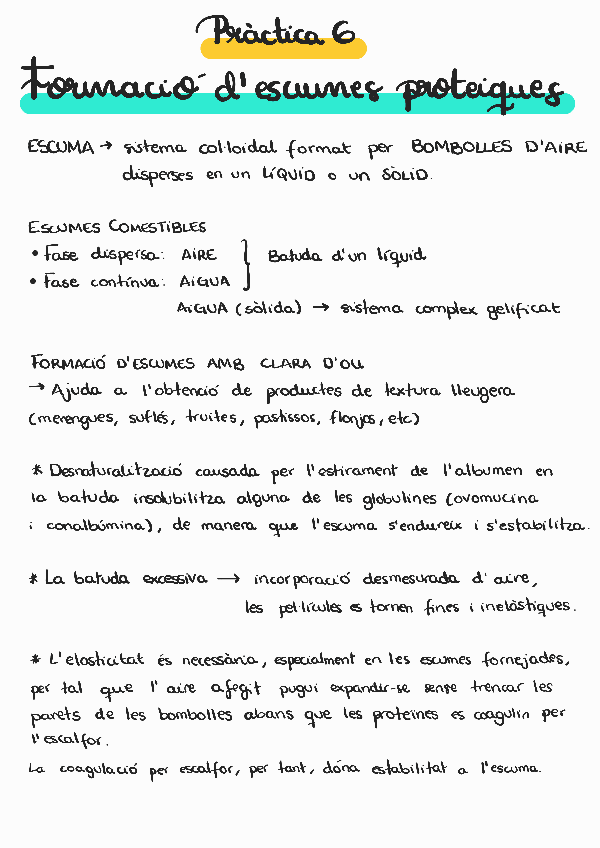 Pràctica 6
Formació d'escumes proteiques
ESCUMA → sistema col·loidal format per BOMBOLLES D'AIRE
disperses en un LÍQUID o un SÒLID.
ESCUMES COMESTIBLES
• Fase dispersa: AIRE } Batuda d'un líquid
• Fase contínua: AIGUA
AIGUA (sòlida) → sistema complex gelificat
FORMACIÓ D'ESCUMES AMB CLARA D'OU
→ Ajuda a l'obtenció de productes de textura lleugera
(merengues, suflés, truites, pastissos, flonjos, etc)
* Desnaturalització causada per l'estirament de l'albumen en
la batuda insolubilitza alguna de les globulines (ovomucina
i conalbúmina), de manera que l'escuma s'endureix i s'estabilitza.
* La batuda excessiva → incorporació desmesurada d'aire,
les pel·lícules es tornen fines i inelàstiques.
* L'elasticitat és necessària, especialment en les escumes fornejades,
per tal que l'aire afegit pugui expandir-se sense trencar les
parets de les bombolles abans que les proteïnes es coagulin per
l'escalfor.
La coagulació per escalfor, per tant, dóna estabilitat a l'escuma.